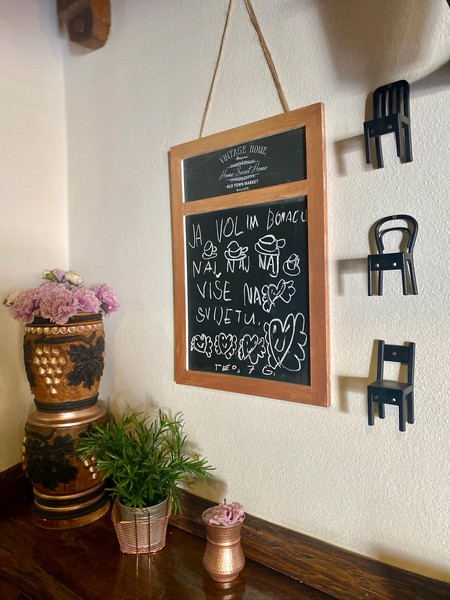 VINTAGE HOME
Home Sweet Home
OLD TOWN MARKET
JA VOLIM BOMACU
NAJ NAJ NAJ
VIŠE NA
SVIJETU.
TEO, 7 G.